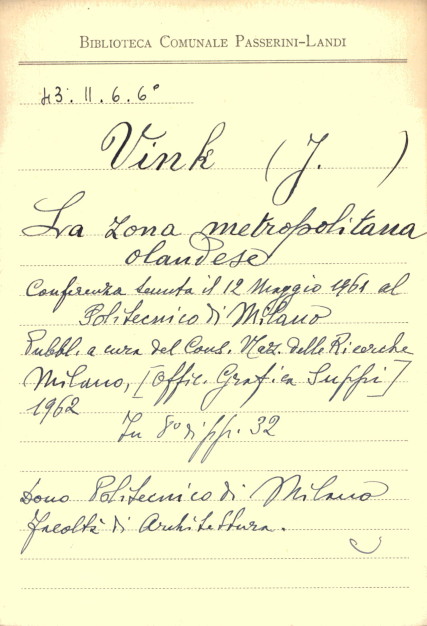 BIBLIOTECA COMUNALE PASSERINI-LANDI
43. II. 6. 6°
Vink (J. )
La zona metropolitana
olandese
Conferenza tenuta il 12 Maggio 1961 al
Politecnico di Milano
Pubbl. a cura del Cons. Naz. delle Ricerche
Milano, [Offic. Grafica]
1962
In 8° di pp. 32
Dono Politecnico di Milano
Facoltà di Architettura.